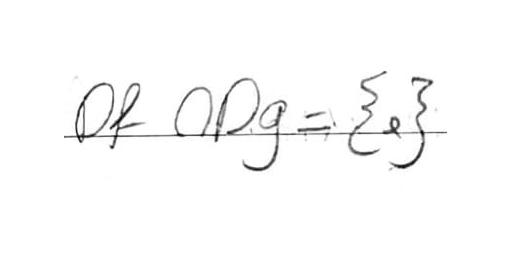 Df ∩ Dg = {e}